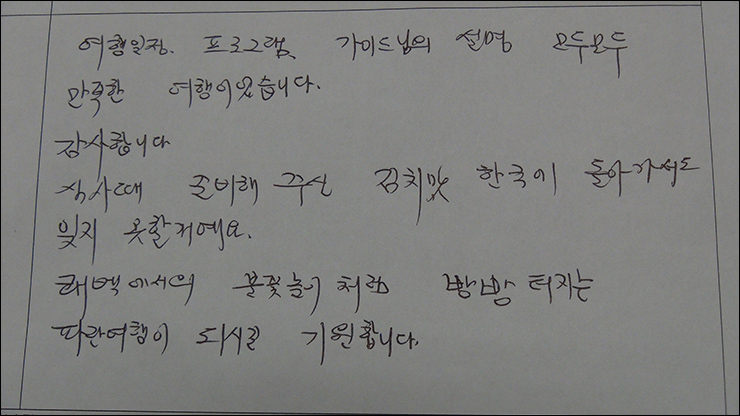 여행일정. 프로그램, 가이드님의 설명 모두모두
만족한 여행이었습니다.
감사합니다
식사때 준비해 주신 김치맛 한국에 돌아가서도
잊지 못할거예요.
태백에서의 불꽃놀이 처럼 빵빵 터지는
파란여행이 되시길 기원합니다.